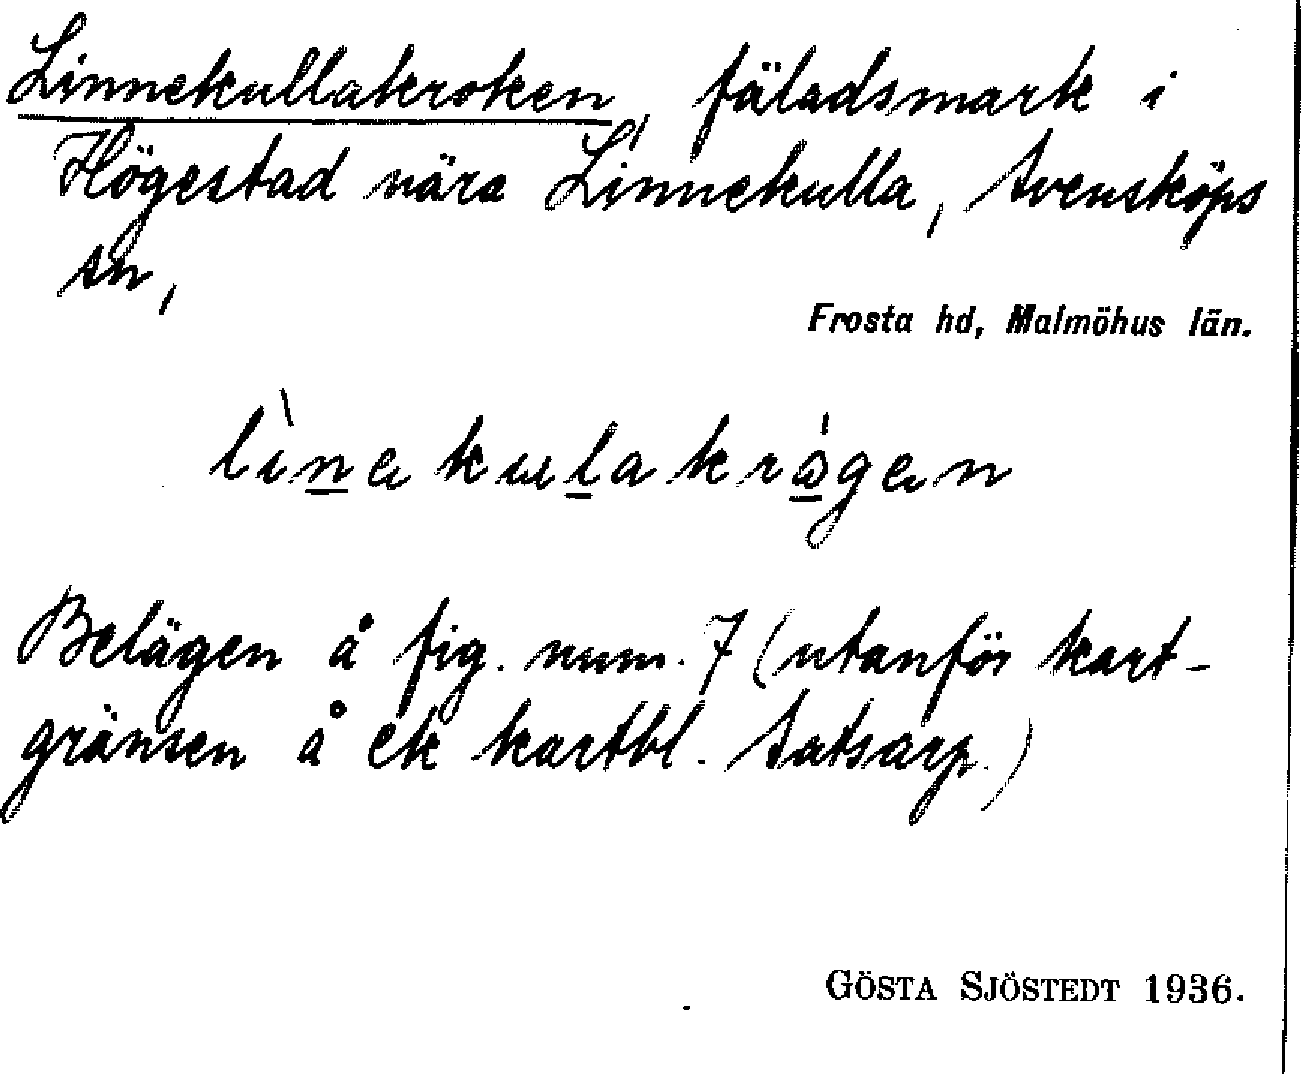 Linnekullakroken, fäladsmark i
Högestad nära Linnekulla, Svensköps
sn,
Frosta hd, Malmöhus län.
lìnekulakrågen
Belägen å fig. num. 7 (utanför kart-
gränsen å ek kartbl. Satsarp.)
GÖSTA SJÖSTEDT 1936.